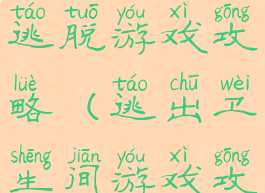 táo tuō yóu xì gōng
逃脱游戏攻
lüè táo chū wèi
略（逃出卫
shēng jiān yóu xì gōng
生间游戏攻